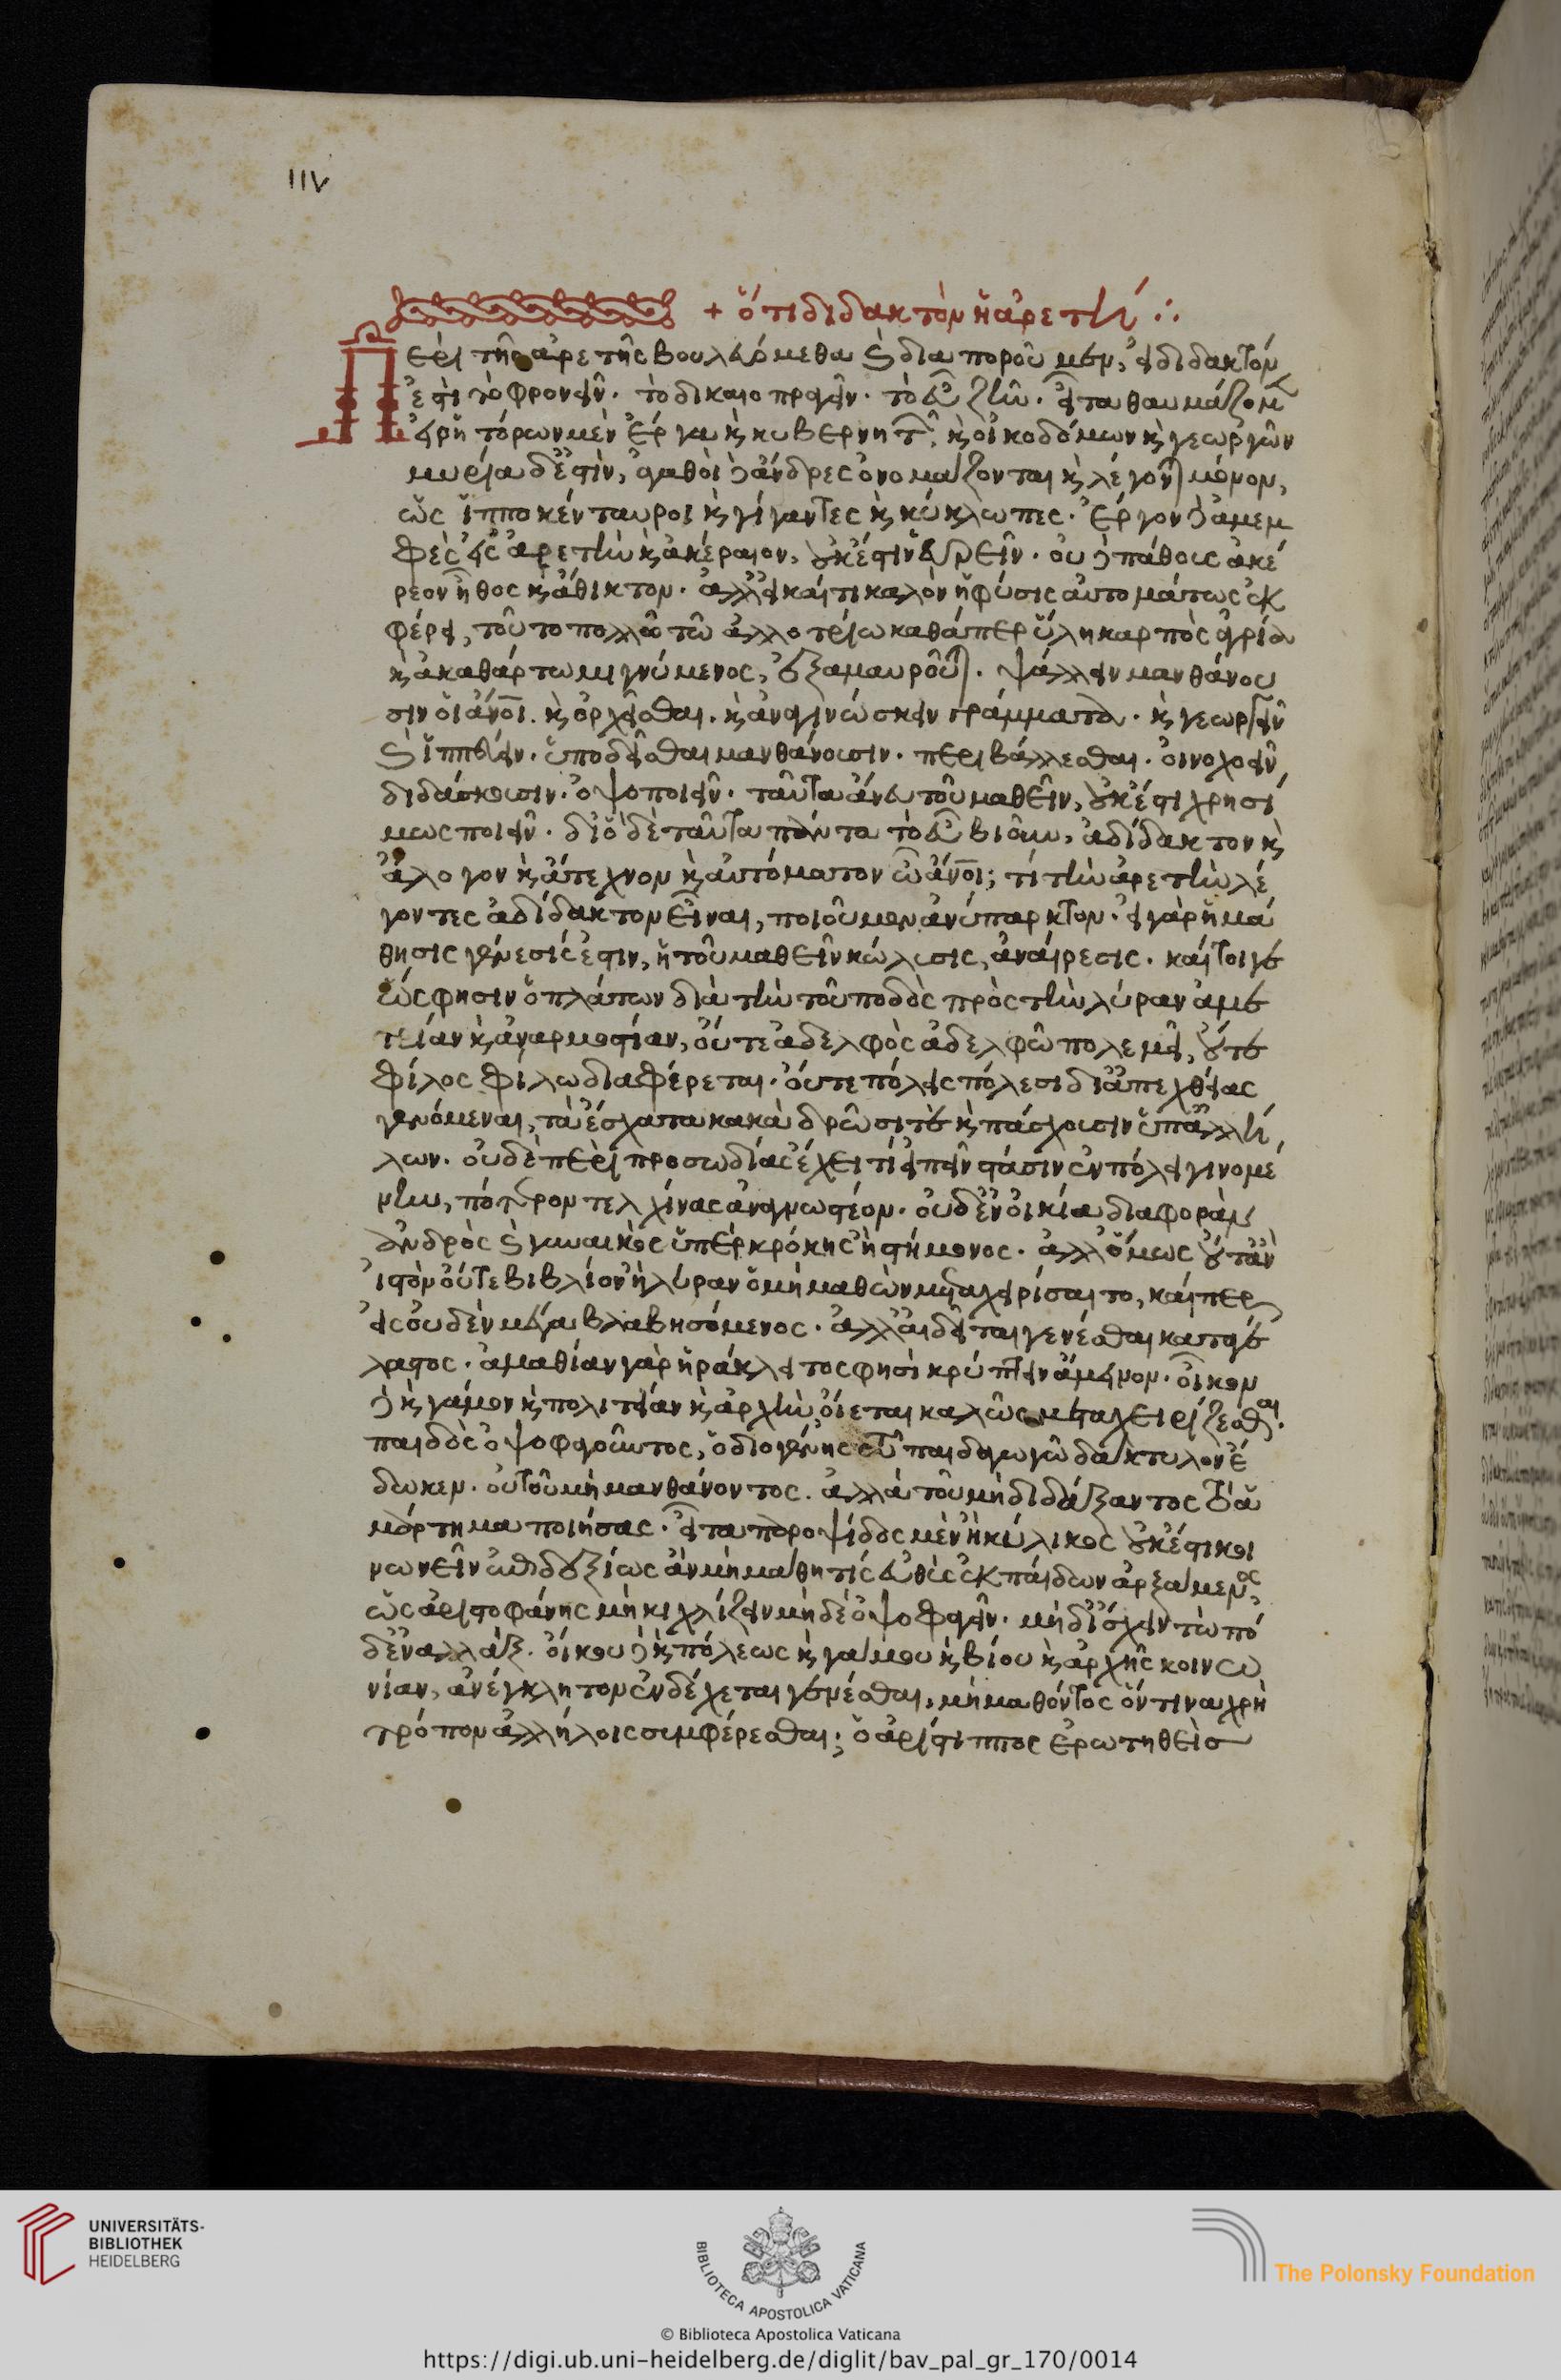 IIV
+ ὅτι διδακτὸν ἡ ἀρετὴ ∴
Περὶ τῆς ἀρετῆς βουλευόμεθα καὶ διαποροῦμεν, εἰ διδακτόν
ἐστι τὸ φρονεῖν. τὸ δικαιοπραγεῖν. τὸ εὖ ζῆν. εἶτα θαυμάζομεν
εἰ ῥητόρων μὲν ἔργα καὶ κυβερνητῶν, καὶ οἰκοδόμων καὶ γεωργῶν
μυρία δέ ἐστιν, ἀγαθοὶ δὲ ἄνδρες ὀνομάζονται καὶ λέγονται μόνον,
ὡς ἱπποκένταυροι καὶ γίγαντες καὶ κύκλωπες. ἔργον δὲ ἀμεμ
φὲς εἰς ἀρετὴν καὶ ἀκέραιον, οὐκ ἔστιν εὑρεῖν. οὐδὲ πάθους ἀκέ
ρεον ἦθος καὶ ἄθικτον. ἀλλ' εἰ καί τι καλὸν ἡ φύσις αὐτομάτως ἐκ
φέρει, τοῦτο πολλῶ τῶ ἀλλοτρίω καθάπερ ὕλη καρπὸς ἀγρία
καὶ ἀκαθάρτω μιγνύμενος, ἐξαμαυροῦται. ψάλλειν μανθάνου
σιν οἱ ἄνοι. καὶ ὀρχεῖσθαι. καὶ ἀναγινώσκειν γράμματα. καὶ γεωργεῖν
καὶ ἱππεύειν. ὑποδεῖσθαι μανθάνουσιν. περιβάλλεσθαι. οἰνοχοεῖν
διδάσκουσιν. ὀψοποιεῖν. ταῦτα ἄνευ τοῦ μαθεῖν, οὐκ ἔστι χρησί
μως ποιεῖν. δι' ὃ δὲ ταῦτα πάντα τὸ εὖ βιοῦν, ἀδίδακτον καὶ
ἄλογον καὶ ἄτεχνον καὶ αὐτόματον ὦ ἄνοι; τί τὴν ἀρετὴν λέ
γοντες ἀδίδακτον εἶναι, ποιοῦμεν ἀνύπαρκτον. εἰ γὰρ ἡ μά
θησις γένεσίς ἐστιν, ἡ τοῦ μαθεῖν κώλυσις, ἀναίρεσις. καίτοι γε
ὥς φησιν ὁ πλάτων διὰ τὴν τοῦ ποδὸς πρὸς τὴν λύραν ἀμε
τρίαν καὶ ἀναρμοστίαν, οὔτε ἀδελφὸς ἀδελφῶ πολεμεῖ, οὔτε
φίλος φίλω διαφέρεται. οὔτε πόλεις πόλεσι δι' ἀπεχθείας
γενόμεναι, τὰ ἔσχατα κακὰ δρῶσί τε καὶ πάσχουσιν ὑπ' ἀλλή
λων. οὐδὲ περὶ προσωδίας ἔχει τι εἰπεῖν στάσιν ἐν πόλει γινομέ
νην, πότερον τελχῖνας ἀναγνωστέον. οὐδ' ἐν οἰκία διαφορὰν
ἀνδρὸς καὶ γυναικὸς ὑπὲρ κρόκης ἢ στήμονος. ἀλλ' ὅμως οὔτ' ἂν
ἱστὸν οὔτε βιβλίον ἢ λύραν ὁ μὴ μαθὼν μεταχειρίσαιτο, καίπερ
εἰς οὐδὲν μέγα βλαβησόμενος. ἀλλ' αἰδεῖται γενέσθαι καταγέ
λαστος. ἀμαθίαν γὰρ ἡράκλειτός φησι κρύπτειν ἄμεινον. οἶκον
δὲ καὶ γάμον καὶ πολιτείαν καὶ ἀρχὴν οἴεται καλῶς μεταχειρίζεσθαι.
παιδὸς ὀψοφαγοῦντος, ὁ διογένης τῶ παιδαγωγῶ δάκτυλον ἔ
δωκεν. οὐ τοῦ μὴ μανθάνοντος. ἀλλὰ τοῦ μὴ διδάξαντος τὸ ἁ
μάρτημα ποιήσας. εἶτα παροψίδος μὲν ἢ κύλικος οὐκ ἔστι κοι
νωνεῖν ἐπιδεξίως ἂν μὴ μάθη τις εὐθὺς ἐκ παίδων ἀρξάμενος,
ὡς ἀριστοφάνης μὴ κιχλίζειν μηδὲ ὀψοφαγεῖν. μηδ' ἴσχειν τὼ πό
δ' ἐναλλάξ. οἴκου δὲ καὶ πόλεως καὶ γάμου καὶ βίου καὶ ἀρχῆς κοινω
νίαν, ἀνέγκλητον ἐνδέχεται γενέσθαι, μὴ μαθόντος ὅντινα χρὴ
τρόπον ἀλλήλοις συμφέρεσθαι; ὁ ἀρίστιππος ἐρωτηθεὶς
UNIVERSITÄTS-
BIBLIOTHEK
HEIDELBERG
BIBLIOTECA APOSTOLICA VATICANA
The Polonsky Foundation
© Biblioteca Apostolica Vaticana
https://digi.ub.uni-heidelberg.de/diglit/bav_pal_gr_170/0014